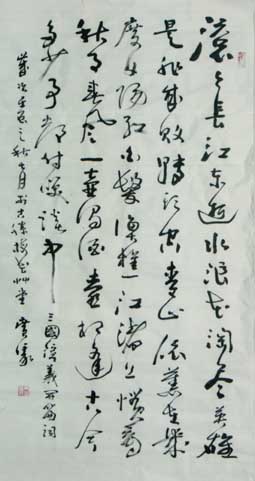 滚々长江东逝水浪花淘尽英雄
是非成败转头空青山依旧在几
度夕阳红白髮渔樵江渚上惯看
秋月春风一壶浊酒喜相逢古今
多少事都付笑谈中 三國演义开篇词
岁次之秋月於草堂